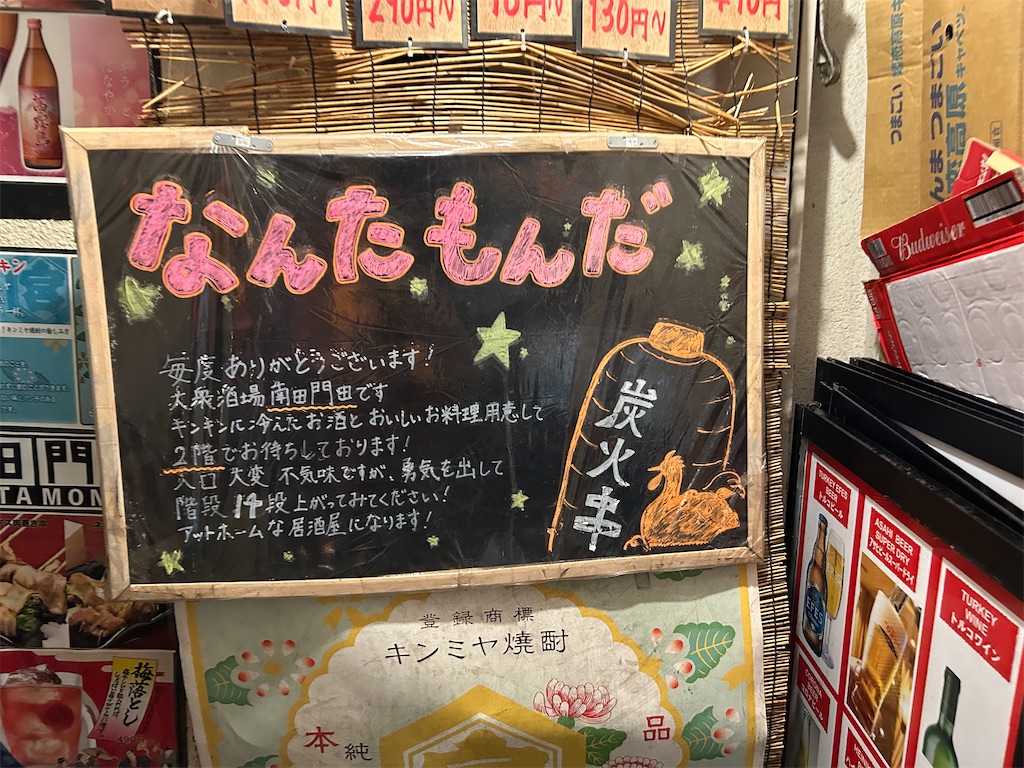 290円〜
130円〜
なんたもんだ
毎度ありがとうございます!
大衆酒場 南田門田です
キンキンに冷えたお酒とおいしいお料理用意して
2階でお待ちしております!
入口 大変 不気味ですが、勇気を出して
階段 14段上がってみてください!
アットホームな居酒屋になります!
炭火串
登録商標
キンミヤ焼酎
本
純
品
梅落とし
田門
TAMON
つまごい
高原
キャベツ
Budweiser
TURKEY EFES
BEER
トルコビール
ASAHI BEER
SUPER DRY
アサヒスーパードライ
TURKEY
WINE
トルコワイン
EFES